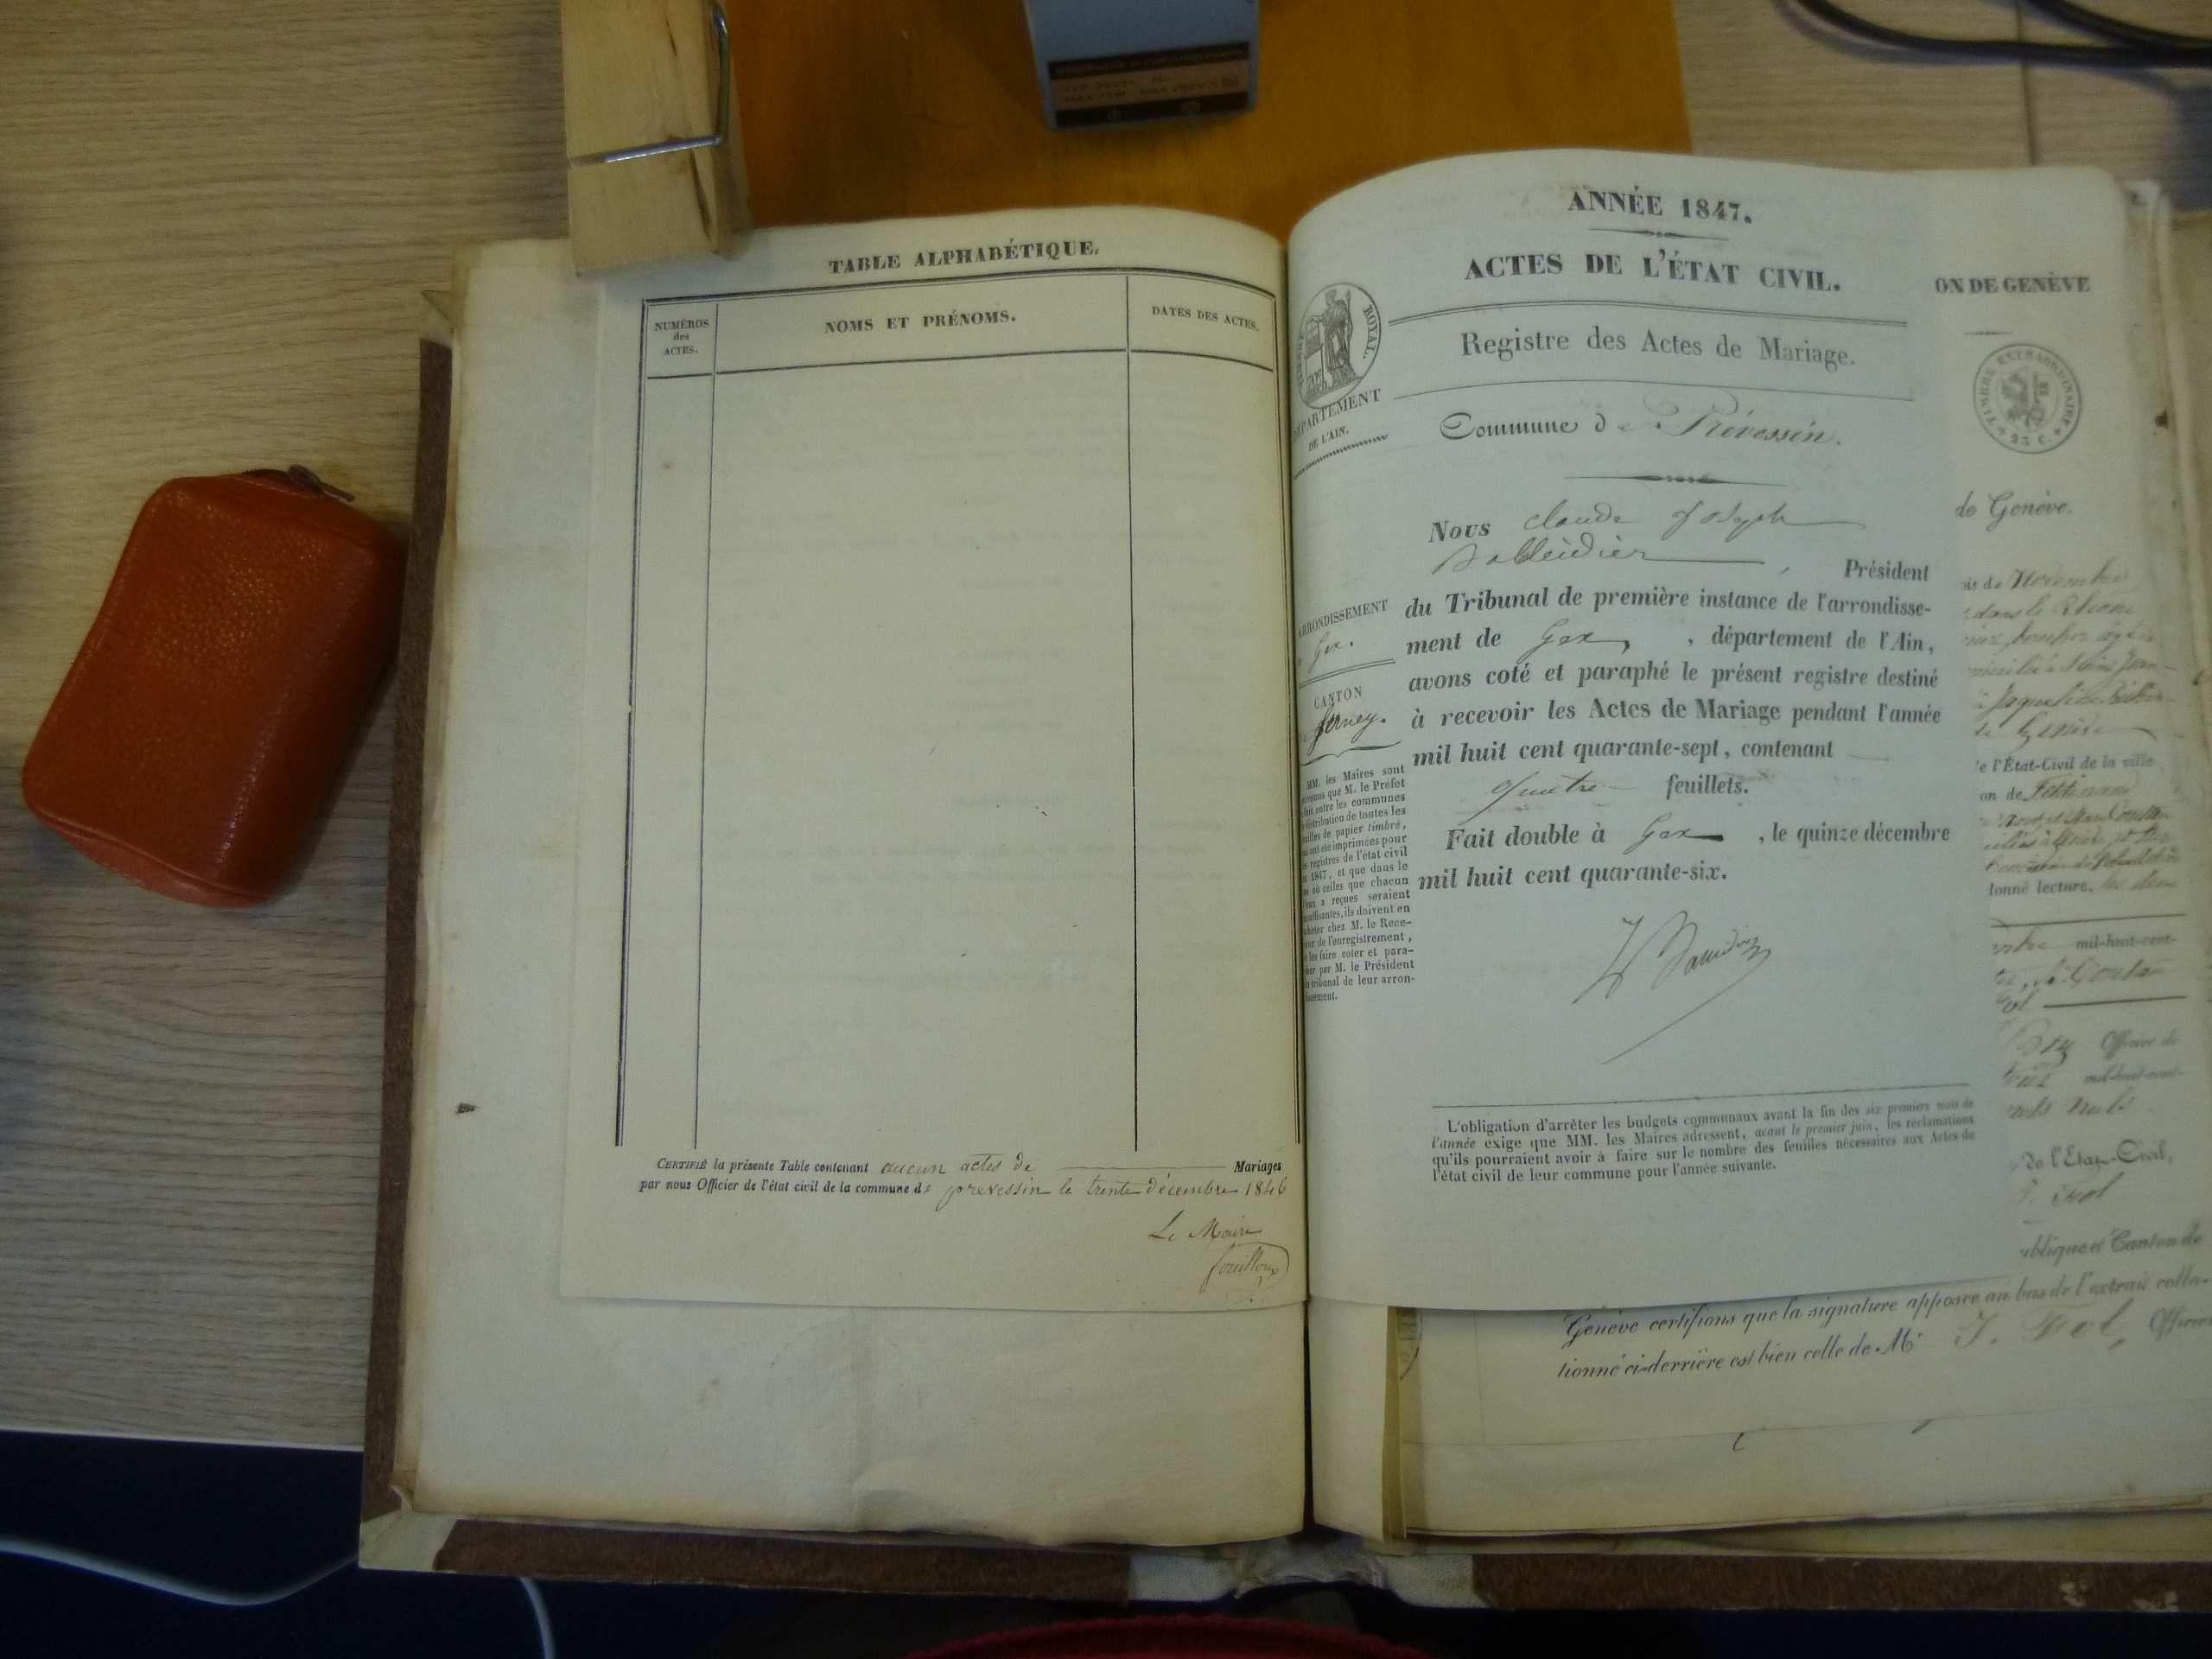 TABLE ALPHABÉTIQUE.
NUMÉROS
des
ACTES.
NOMS ET PRÉNOMS.
DATES DES ACTES.
CERTIFIÉ la présente Table contenant aucun actes de Mariages
par nous Officier de l'état civil de la commune de prevessin le trente décembre 1846
Le Maire
fouilloux
ANNÉE 1847.
ACTES DE L'ÉTAT CIVIL.
Registre des Actes de Mariage.
Commune de Prévessin.
ROYAL.
DÉPARTEMENT
DE L'AIN.
ARRONDISSEMENT
Gex.
CANTON
ferney.
MM. les Maires sont
que M. le Préfet
fait entre les communes
distribution de toutes les
feuilles de papier timbré,
ont été imprimées pour
registres de l'état civil
1847, et que dans le
où celles que chacun
a reçues seraient
ils doivent en
chez M. le Rece-
de l'enregistrement,
les faire coter et para-
par M. le Président
tribunal de leur arron-
Nous Claude Joseph
, Président
du Tribunal de première instance de l'arrondisse-
ment de Gex, , département de l'Ain,
avons coté et paraphé le présent registre destiné
à recevoir les Actes de Mariage pendant l'année
mil huit cent quarante-sept, contenant
quatre feuillets.
Fait double à Gex , le quinze décembre
mil huit cent quarante-six.
L'obligation d'arrêter les budgets communaux avant la fin des six premiers mois de
l'année exige que MM. les Maires adressent, avant le premier juin, les réclamations
qu'ils pourraient avoir à faire sur le nombre des feuilles nécessaires aux Actes de
l'état civil de leur commune pour l'année suivante.
ON DE GENÈVE
TIMBRE EXTRAORDINAIRE
25 C.
de Genève.
is de Novembre
dans le
e l'État-Civil de la ville
on de Ferdinand
donné lecture,
mil-huit-cent-
Officier de
mil-huit-cent-
de l'État-Civil,
ublique et Canton de
Genève certifions que la signature apposée au bas de l'extrait colla-
tionné ci-derrière est bien celle de Mr J. Fol, Officier